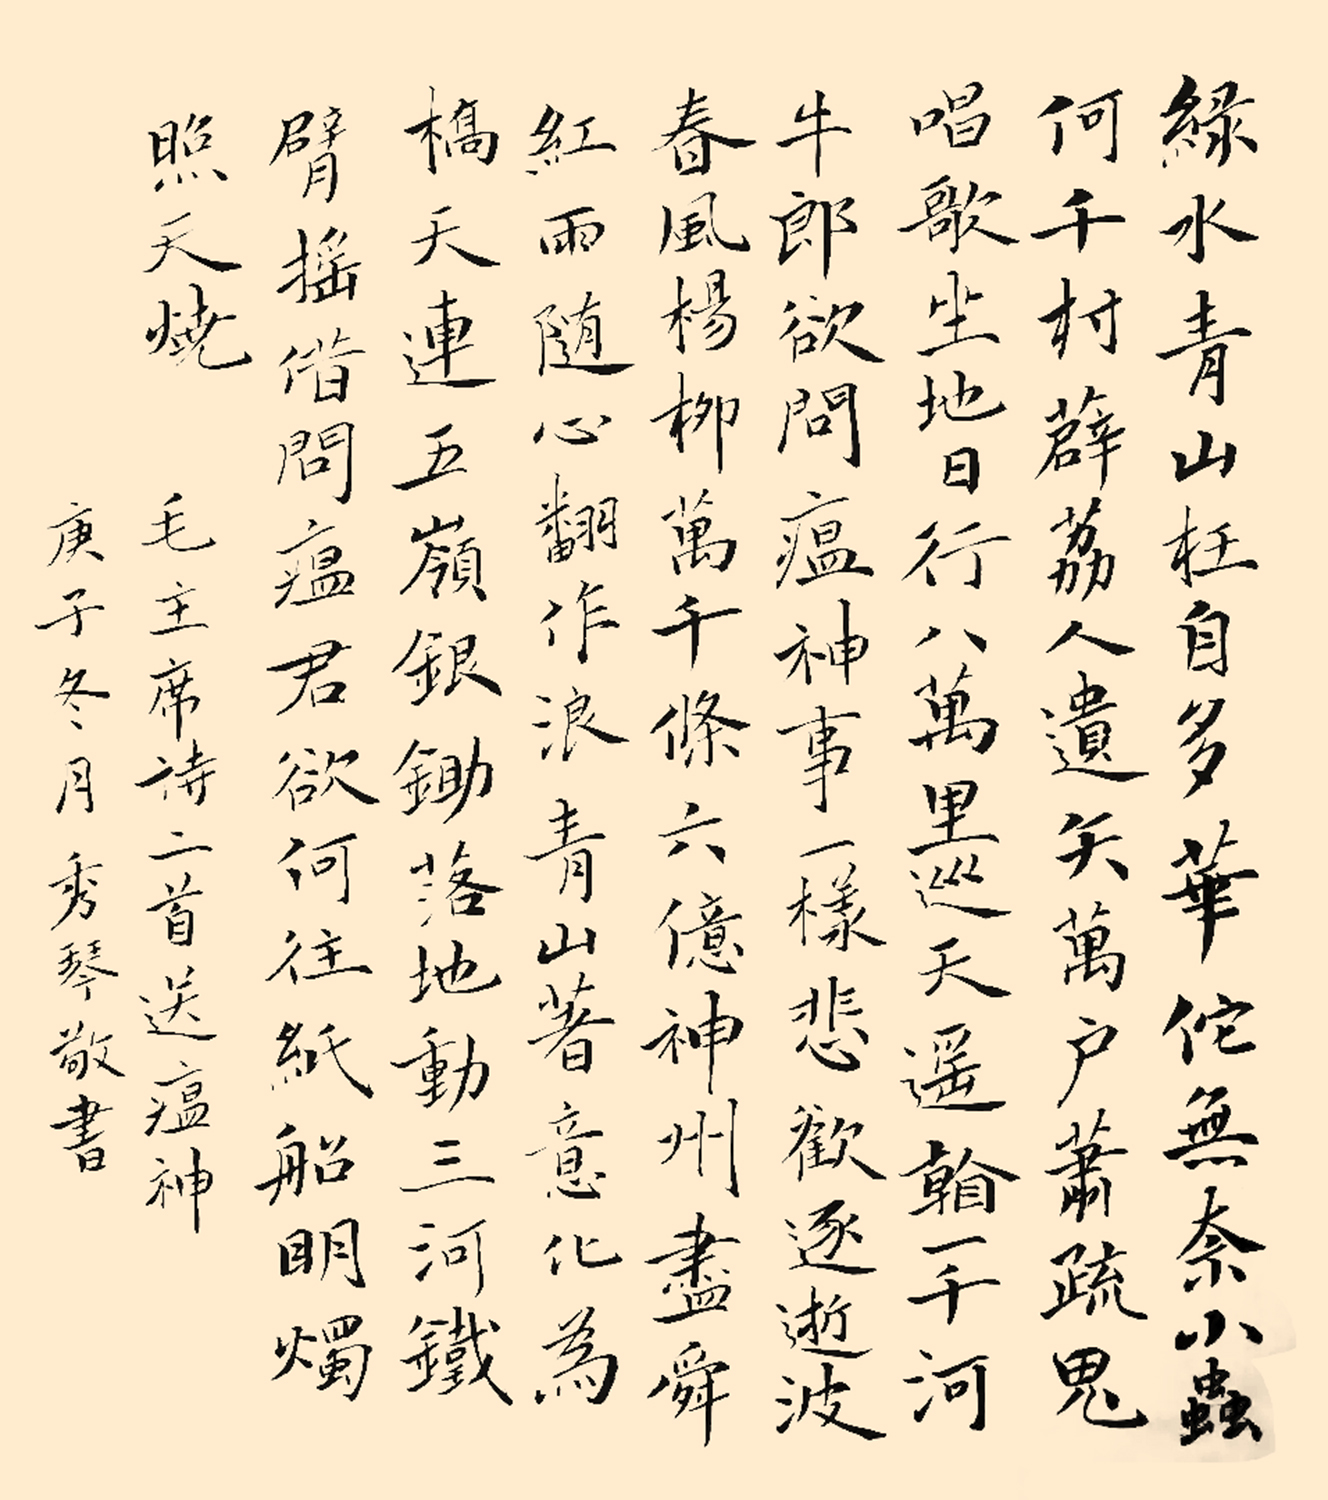 綠水青山枉自多華佗無奈小蟲
何千村薜荔人遺矢萬户蕭疏鬼
唱歌坐地日行八萬里巡天遥翰一千河
牛郎欲問瘟神事一樣悲歡逐逝波
春風楊柳萬千條六億神州盡舜
紅雨随心翻作浪青山著意化為
橋天連五嶺銀鋤落地動三河鐵
臂摇借問瘟君欲何往紙船明燭
照天燒
毛主席詩二首送瘟神
庚子冬月秀琴敬書